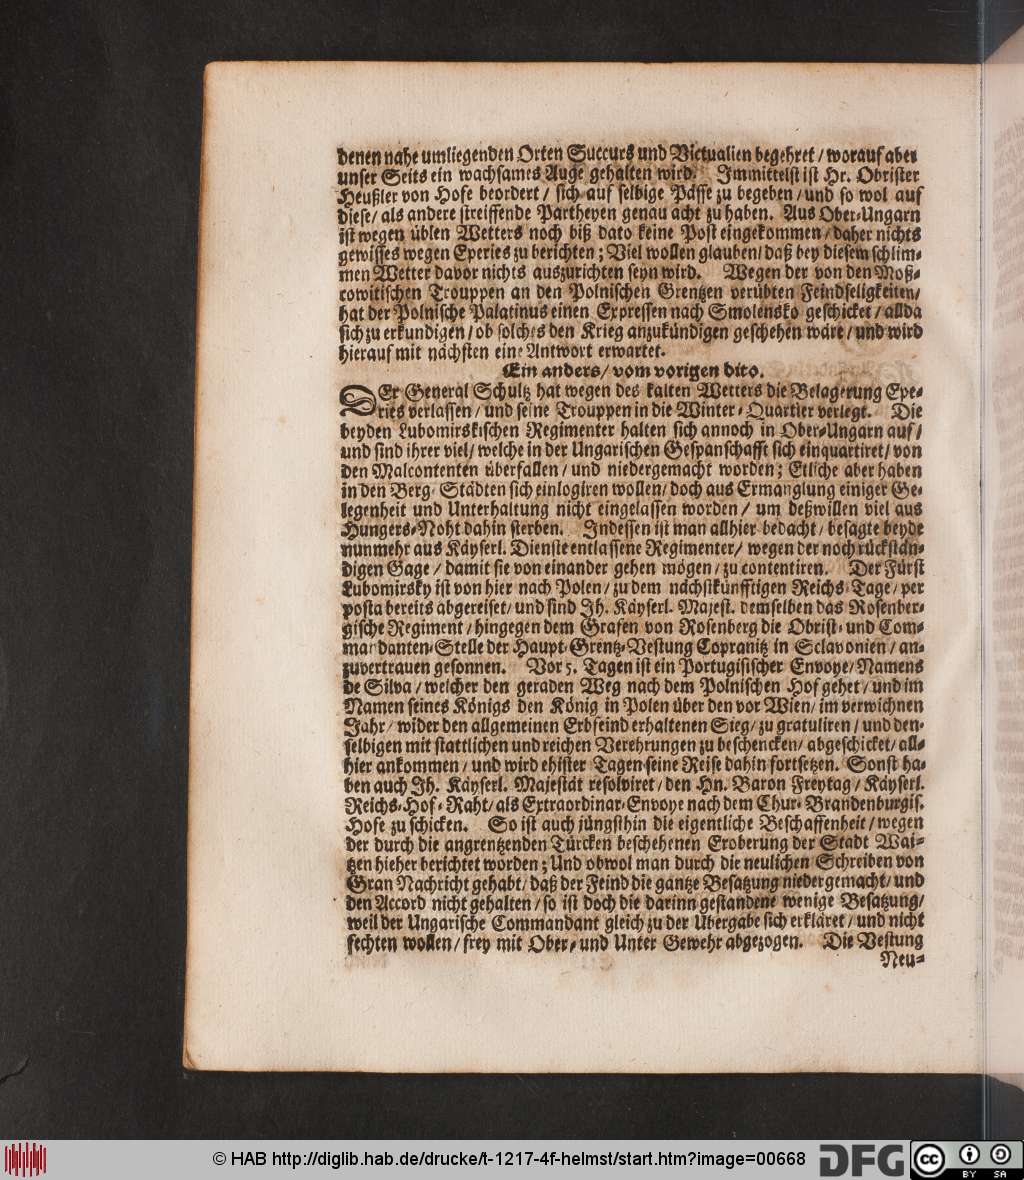 denen nahe umliegenden Orten Succurs und Victualien begehret / worauf aber
unser Seits ein wachsames Auge gehalten wird. Immittelst ist Hr. Obrister
Heußler von Hofe beordert / sich auf selbige Pässe zu begeben / und so wol auf
diese / als andere streiffende Partheyen genau acht zu haben. Aus Ober-Ungarn
ist wegen üblen Wetters noch biß dato keine Post eingekommen / daher nichts
gewisses wegen Eperies zu berichten ; Viel wollen glauben / daß bey diesem schlim-
men Wetter davor nichts auszurichten seyn wird. Wegen der von den Moß-
cowitischen Trouppen an den Polnischen Grentzen verübten Feindseligkeiten /
hat der Polnische Palatinus einen Expressen nach Smolensko geschicket / allda
sich zu erkundigen / ob solches den Krieg anzukündigen geschehen wäre / und wird
hierauf mit nächsten eine Antwort erwartet.
Ein anders / vom vorigen dito.
DEr General Schultz hat wegen des kalten Wetters die Belagerung Epe-
ries verlassen / und seine Trouppen in die Winter-Quartier verlegt. Die
beyden Lubomirskischen Regimenter halten sich annoch in Ober-Ungarn auf /
und sind ihrer viel / welche in der Ungarischen Gespanschafft sich einquartiret / von
den Malcontenten überfallen / und niedergemacht worden ; Etliche aber haben
in den Berg-Städten sich einlogiren wollen / doch aus Ermanglung einiger Ge-
legenheit und Unterhaltung nicht eingelassen worden / um deßwillen viel aus
Hungers-Noht dahin sterben. Indessen ist man allhier bedacht / besagte beyde
nunmehr aus Käyserl. Dienste entlassene Regimenter / wegen der noch rückstän-
digen Gage / damit sie von einander gehen mögen / zu contentiren. Der Fürst
Lubomirsky ist von hier nach Polen / zu dem nächstkünfftigen Reichs-Tage / per
posta bereits abgereiset / und sind Ih. Käyserl. Majest. demselben das Rosenber-
gische Regiment / hingegen dem Grafen von Rosenberg die Obrist- und Com-
mandanten-Stelle der Haupt-Grentz-Vestung Copranitz in Sclavonien / an-
zuvertrauen gesonnen. Vor 5. Tagen ist ein Portugisischer Envoye / Namens
de Silva / welcher den geraden Weg nach dem Polnischen Hof gehet / und im
Namen seines Königs den König in Polen über den vor Wien / im verwichnen
Jahr / wider den allgemeinen Erbfeind erhaltenen Sieg / zu gratuliren / und den-
selbigen mit stattlichen und reichen Verehrungen zu beschencken / abgeschicket / all-
hier ankommen / und wird ehister Tagen seine Reise dahin fortsetzen. Sonst ha-
ben auch Ih. Käyserl. Majestät resolviret / den Hn. Baron Freytag / Käyserl.
Reichs-Hof-Raht / als Extraordinar-Envoye nach dem Chur-Brandenburgis.
Hofe zu schicken. So ist auch jüngsthin die eigentliche Beschaffenheit / wegen
der durch die angrentzenden Türcken beschehenen Eroberung der Stadt Wai-
tzen hieher berichtet worden ; Und obwol man durch die neulichen Schreiben von
Gran Nachricht gehabt / daß der Feind die gantze Besatzung niedergemacht / und
den Accord nicht gehalten / so ist doch die darinn gestandene wenige Besatzung /
weil der Ungarische Commandant gleich zu der Ubergabe sich erkläret / und nicht
fechten wollen / frey mit Ober- und Unter Gewehr abgezogen. Die Vestung
Neu-
© HAB http://diglib.hab.de/drucke/t-1217-4f-helmst/start.htm?image=00668
DFG
cc BY SA